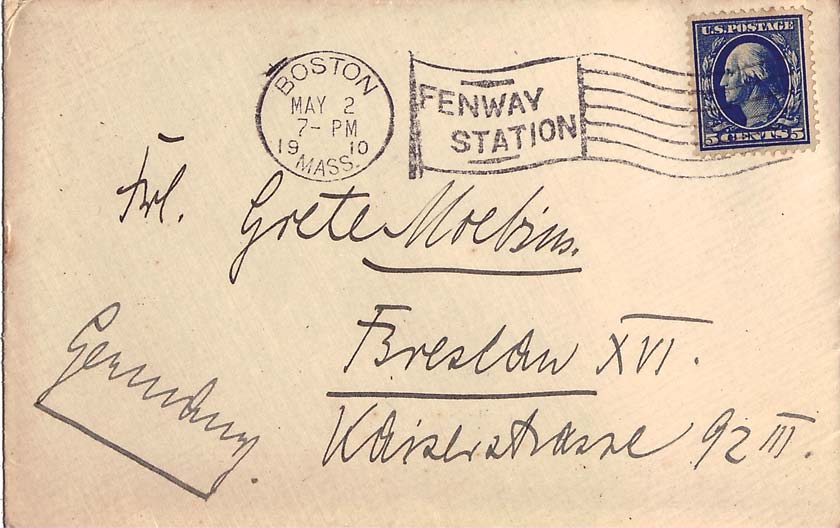 U.S. POSTAGE
5 CENTS 5
BOSTON
MAY 2
7- PM
19 10
MASS.
FENWAY
STATION
Frl. Grete Moebius.
Breslau XVI.
Kaiserstrasse 92 III.
Germany.